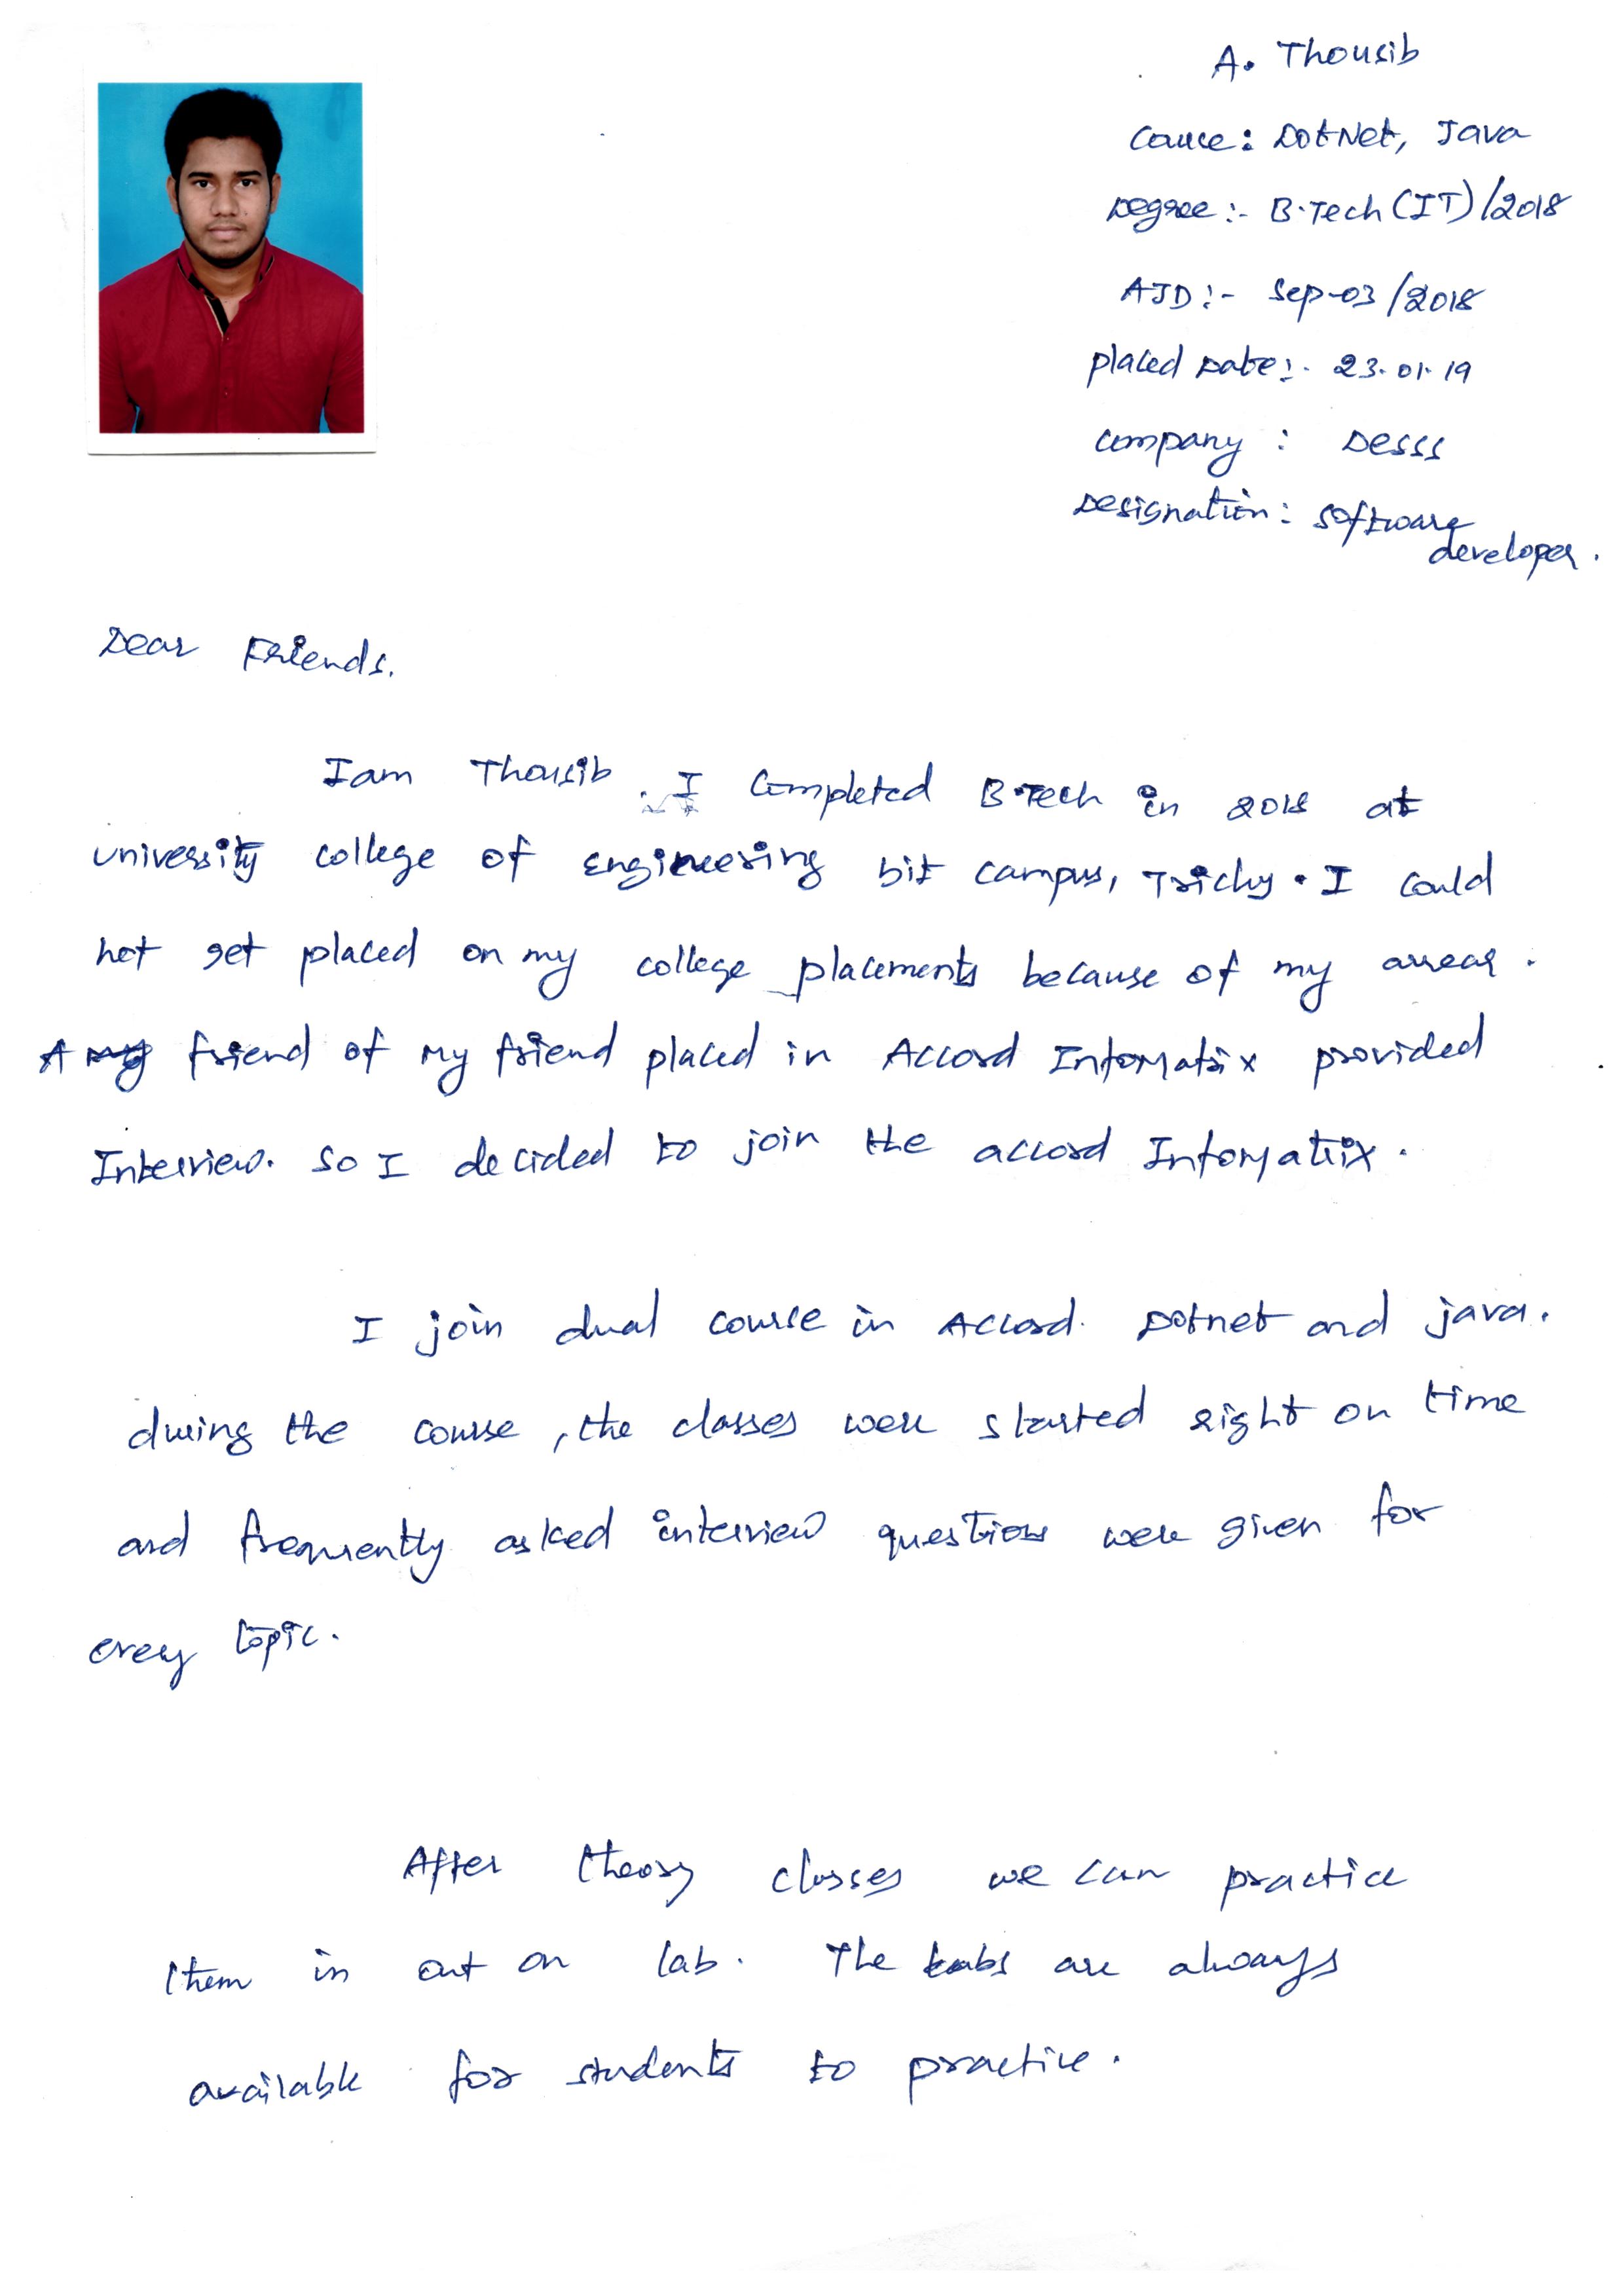 A. Thousib
Course: DotNet, Java
Degree :- B.Tech (IT)/2018
AJD :- Sep-03/2018
Placed Date :- 23.01.19
Company : Desss
Designation : Software
developer.
Dear Friends.
I am Thousib . I Completed B.Tech in 2018 at
university college of Engineering bit campus, Trichy. I could
not get placed on my college placements because of my arrear.
A my friend of my friend placed in Accord Informatrix provided
Interview. So I decided to join the accord Informatrix.
I join dual course in Accord. Dotnet and java.
during the course, the classes were started right on time
and frequently asked interview questions were given for
every topic.
After theory classes we can practice
them in out on lab. The labs are always
available for students to practice.